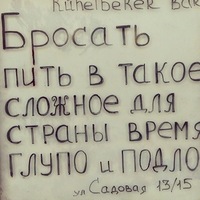 Kühelbeker BAR
Бросать
пить в такое
сложное для
страны время
глупо и подло
ул Садовая 13/15